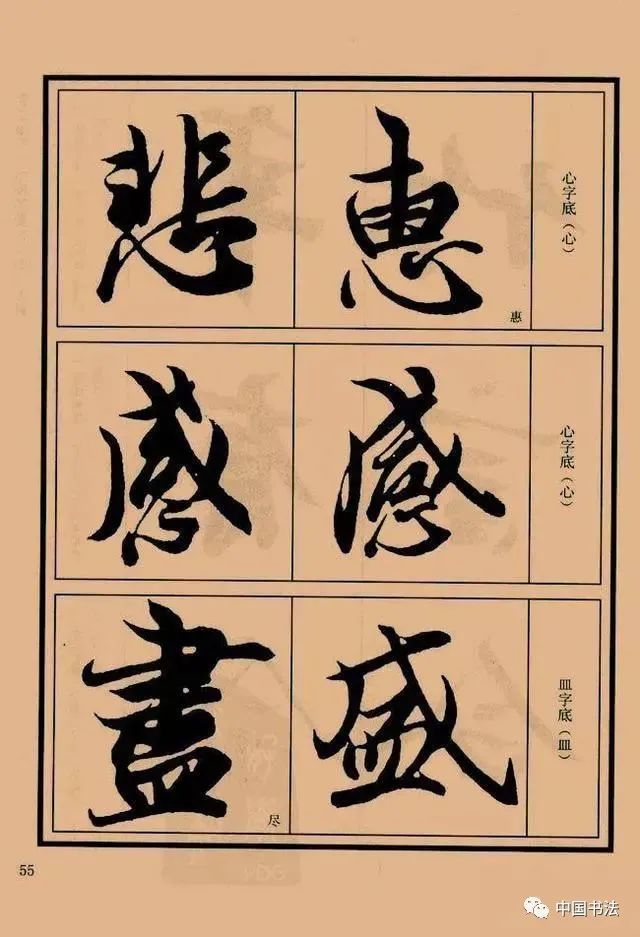 心字底（心）
惠
惠
悲
心字底（心）
感
感
皿字底（皿）
盛
盡
尽
55
中国书法